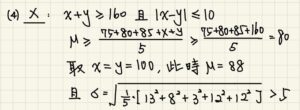 (4) X : x+y ≥ 160 且 |x-y| ≤ 10
μ ≥ (75+80+85+x+y)/5 ≥ (75+80+85+160)/5 = 80
取 x=y=100, 此時 μ=88
且 σ = √(1/5·[13²+8²+3²+12²+12²]) > 5